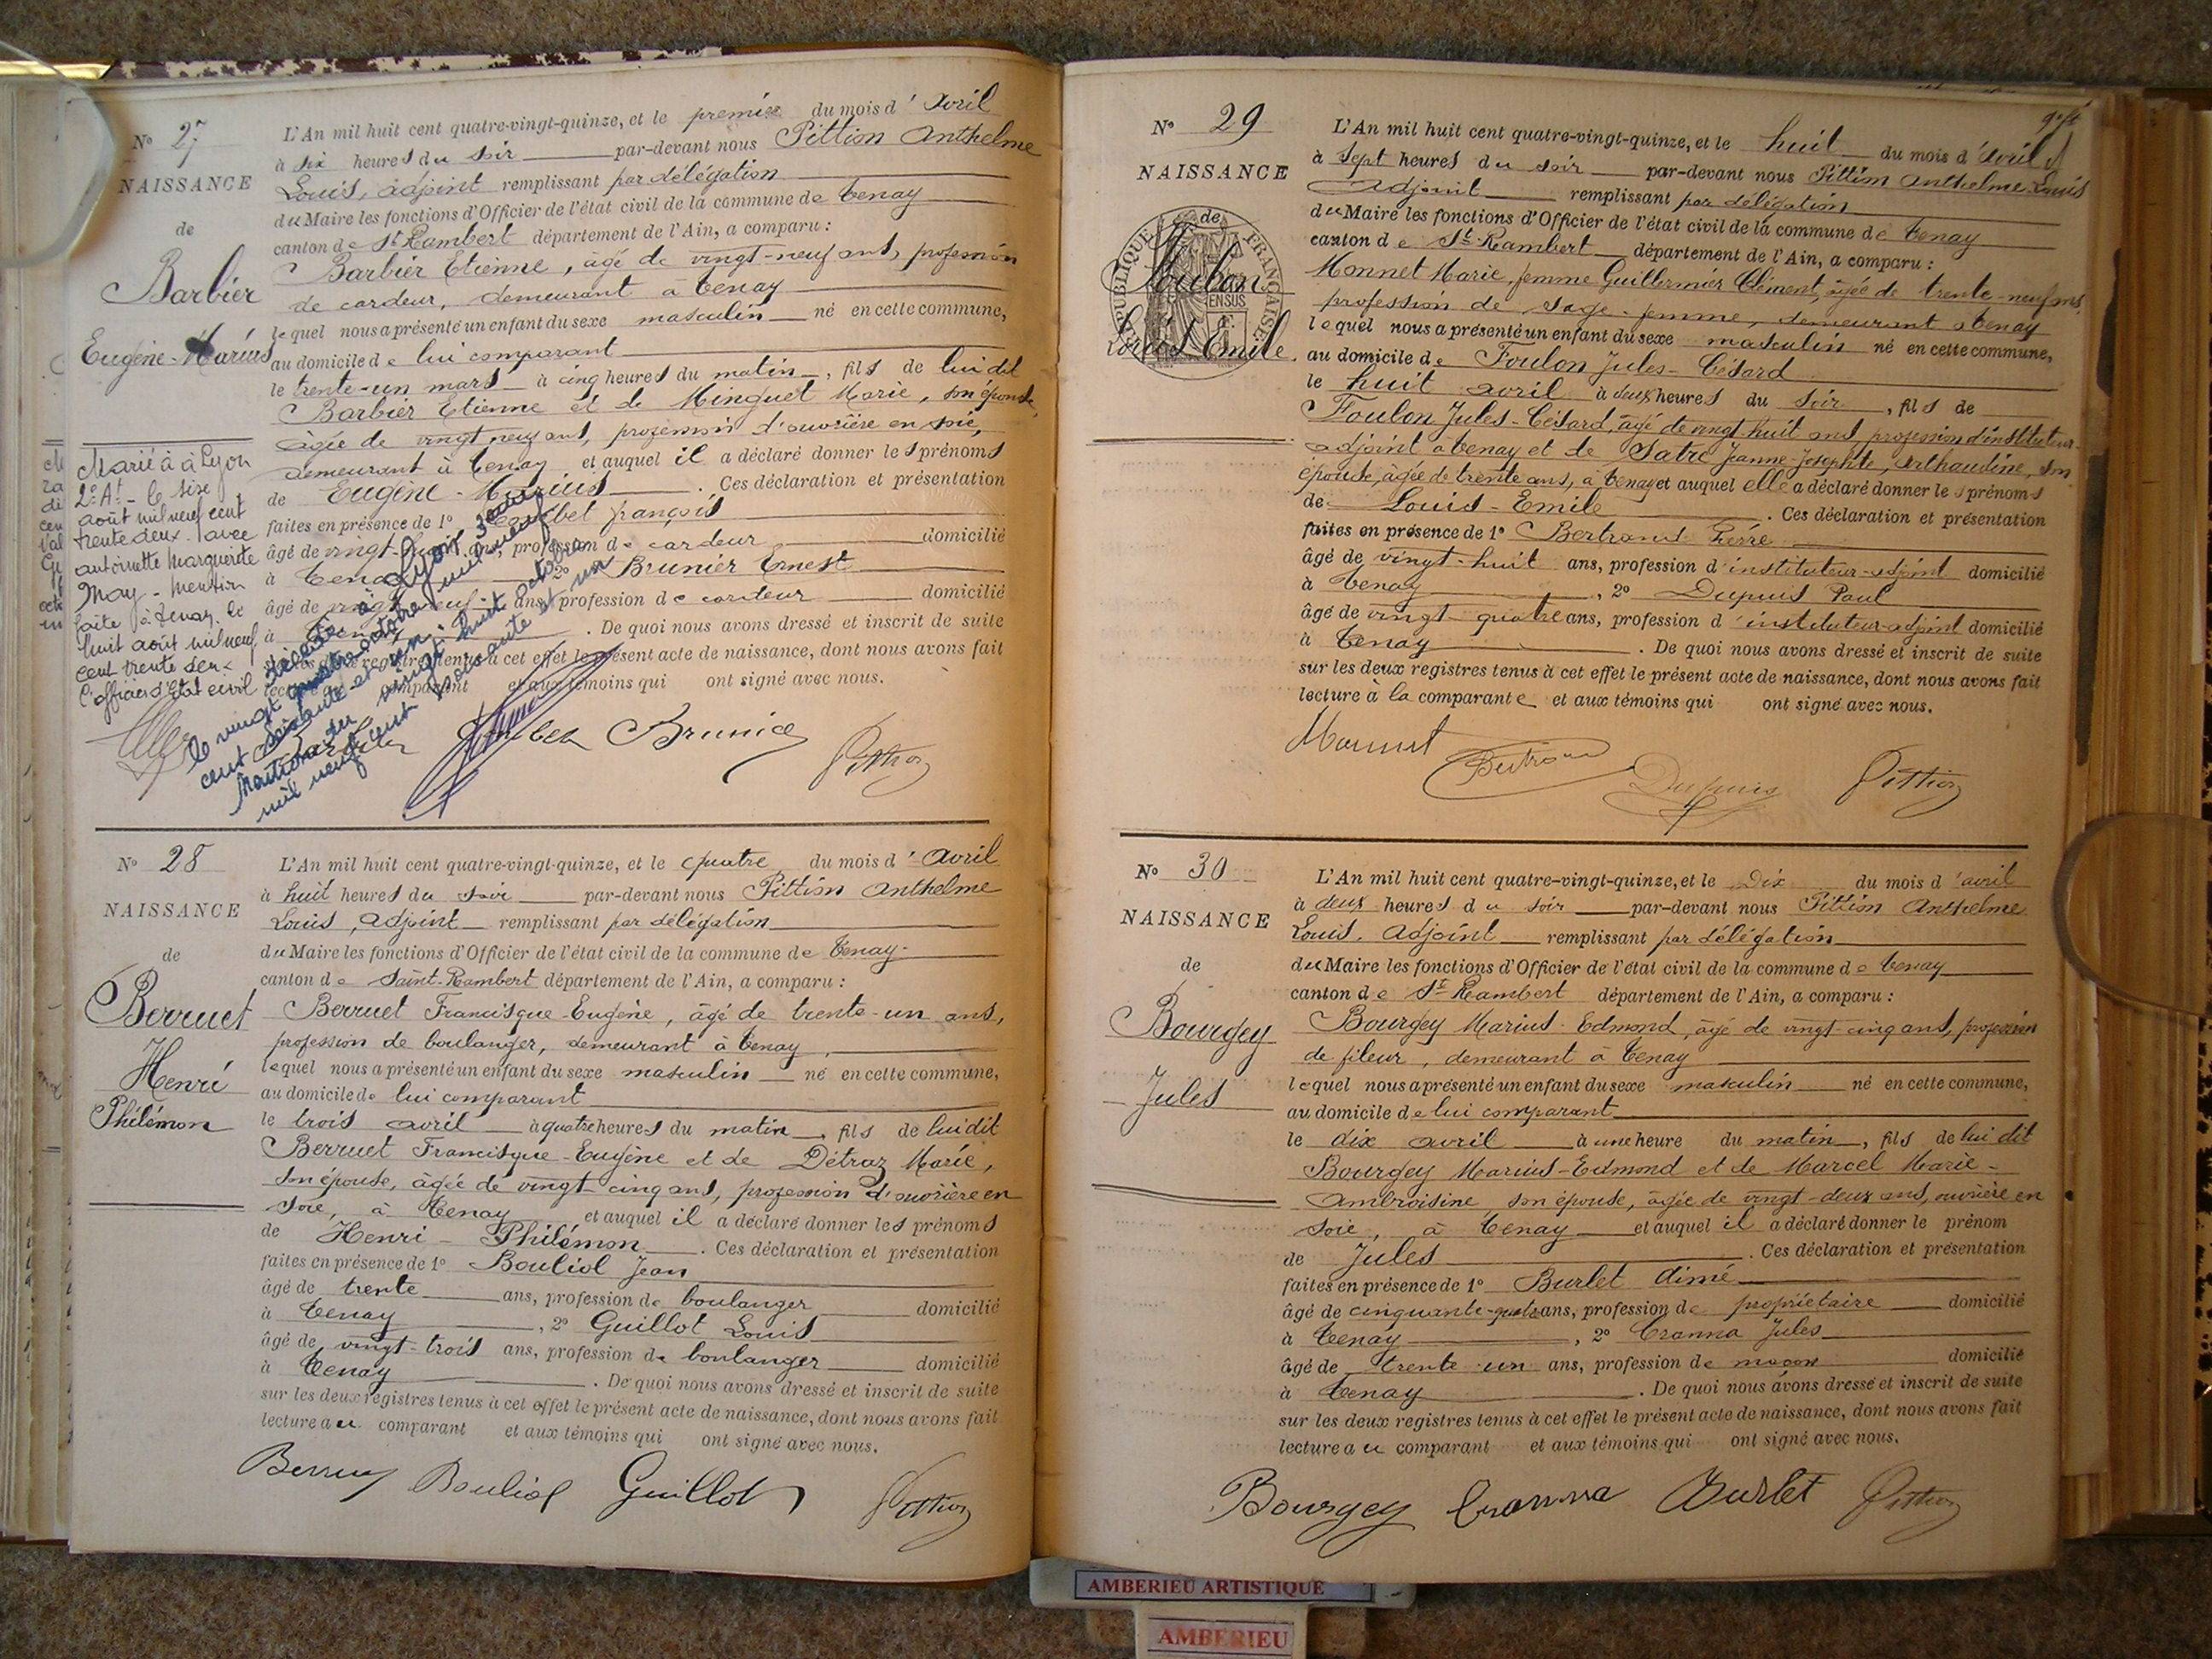 N° 27
NAISSANCE
de
Barbier
Eugène-Marius
L'An mil huit cent quatre-vingt-quinze, et le premier du mois d'Avril
à six heures du soir par-devant nous Pittion Anthelme
Louis, adjoint remplissant par délégation
du Maire les fonctions d'Officier de l'état civil de la commune de Tenay
canton de St Rambert département de l'Ain, a comparu :
Barbier Etienne, âgé de vingt-neuf ans, profession
de cardeur, demeurant à Tenay
lequel nous a présenté un enfant du sexe masculin né en cette commune,
au domicile de lui comparant
le trente-un mars à cinq heures du matin, fils de lui dit
Barbier Etienne et de Minguet Marie, son épouse,
âgée de vingt neuf ans, profession d'ouvrière en soie,
demeurant à Tenay et auquel il a déclaré donner les prénoms
de Eugène-Marius. Ces déclaration et présentation
faites en présence de 1° françois
âgé de ans, profession de cardeur domicilié
à Tenay 2° Brunier Ernest
âgé de vingt-neuf ans, profession de cardeur domicilié
à Tenay. De quoi nous avons dressé et inscrit de suite
registres tenus à cet effet le présent acte de naissance, dont nous avons fait
comparant et aux témoins qui ont signé avec nous.
Marié à à Lyon
2e At - le seize
août mil neuf cent
trente deux. avec
antoinette Marguerite
May - mention
faite à Tenay le
huit août mil neuf
cent trente deux
l'officier d'état civil
Décédé à Lyon 3eme
le vingt quatre octobre mil neuf
cent soixante et un.
Mention du vingt huit octobre
mil neuf cent soixante et un
Barbier Brunier Pittion
N° 28
NAISSANCE
de
Berruet
Henri
Philémon
L'An mil huit cent quatre-vingt-quinze, et le quatre du mois d'Avril
à huit heures du soir par-devant nous Pittion Anthelme
Louis, adjoint remplissant par délégation
du Maire les fonctions d'Officier de l'état civil de la commune de Tenay
canton de Saint-Rambert département de l'Ain, a comparu :
Berruet Francisque-Eugène, âgé de trente-un ans,
profession de boulanger, demeurant à Tenay,
lequel nous a présenté un enfant du sexe masculin né en cette commune,
au domicile de lui comparant
le trois avril à quatre heures du matin, fils de lui dit
Berruet Francisque-Eugène et de Détraz Marie,
son épouse, âgée de vingt-cinq ans, profession d'ouvrière en
soie, à Tenay et auquel il a déclaré donner les prénoms
de Henri-Philémon. Ces déclaration et présentation
faites en présence de 1° Bouliol Jean
âgé de trente ans, profession de boulanger domicilié
à Tenay, 2° Guillot Louis
âgé de vingt-trois ans, profession de boulanger domicilié
à Tenay. De quoi nous avons dressé et inscrit de suite
sur les deux registres tenus à cet effet le présent acte de naissance, dont nous avons fait
lecture au comparant et aux témoins qui ont signé avec nous.
Berruet Bouliol Guillot Pittion
N° 29
NAISSANCE
de
Foulon
Louis Emile
RÉPUBLIQUE FRANÇAISE
L'An mil huit cent quatre-vingt-quinze, et le huit du mois d'Avril
à sept heures du soir par-devant nous Pittion Anthelme Louis
Adjoint remplissant par délégation
du Maire les fonctions d'Officier de l'état civil de la commune de Tenay
canton de St-Rambert département de l'Ain, a comparu :
Monnet Marie, femme Guillermier Clément, âgée de trente-neuf ans,
profession de sage-femme, demeurant à Tenay
lequel nous a présenté un enfant du sexe masculin né en cette commune,
au domicile de Foulon Jules-Césard
le huit avril à deux heures du soir, fils de
Foulon Jules-Césard, âgé de vingt huit ans, profession d'instituteur-
adjoint à Tenay et de Satre Jeanne-Josephte, Arthaudine, son
épouse, âgée de trente ans, à Tenay et auquel elle a déclaré donner les prénoms
de Louis-Emile. Ces déclaration et présentation
faites en présence de 1° Bertrand Pierre
âgé de vingt-huit ans, profession d'instituteur-adjoint domicilié
à Tenay, 2° Dupuis Paul
âgé de vingt-quatre ans, profession d'instituteur-adjoint domicilié
à Tenay. De quoi nous avons dressé et inscrit de suite
sur les deux registres tenus à cet effet le présent acte de naissance, dont nous avons fait
lecture à la comparante et aux témoins qui ont signé avec nous.
Monnet Bertrand Dupuis Pittion
N° 30
NAISSANCE
de
Bourgey
Jules
L'An mil huit cent quatre-vingt-quinze, et le Dix du mois d'avril
à deux heures du soir par-devant nous Pittion Anthelme
Louis, Adjoint remplissant par délégation
du Maire les fonctions d'Officier de l'état civil de la commune de Tenay
canton de St Rambert département de l'Ain, a comparu :
Bourgey Marius-Edmond, âgé de vingt-cinq ans, profession
de fileur, demeurant à Tenay
lequel nous a présenté un enfant du sexe masculin né en cette commune,
au domicile de lui comparant
le dix avril à une heure du matin, fils de lui dit
Bourgey Marius-Edmond et de Marcel Marie-
Ambroisine son épouse, âgée de vingt-deux ans, ouvrière en
soie, à Tenay et auquel il a déclaré donner le prénom
de Jules. Ces déclaration et présentation
faites en présence de 1° Burlet Aimé
âgé de cinquante-quatre ans, profession de propriétaire domicilié
à Tenay, 2° Cranna Jules
âgé de trente-un ans, profession de maçon domicilié
à Tenay. De quoi nous avons dressé et inscrit de suite
sur les deux registres tenus à cet effet le présent acte de naissance, dont nous avons fait
lecture au comparant et aux témoins qui ont signé avec nous.
Bourgey Cranna Burlet Pittion
AMBERIEU ARTISTIQUE
AMBERIEU